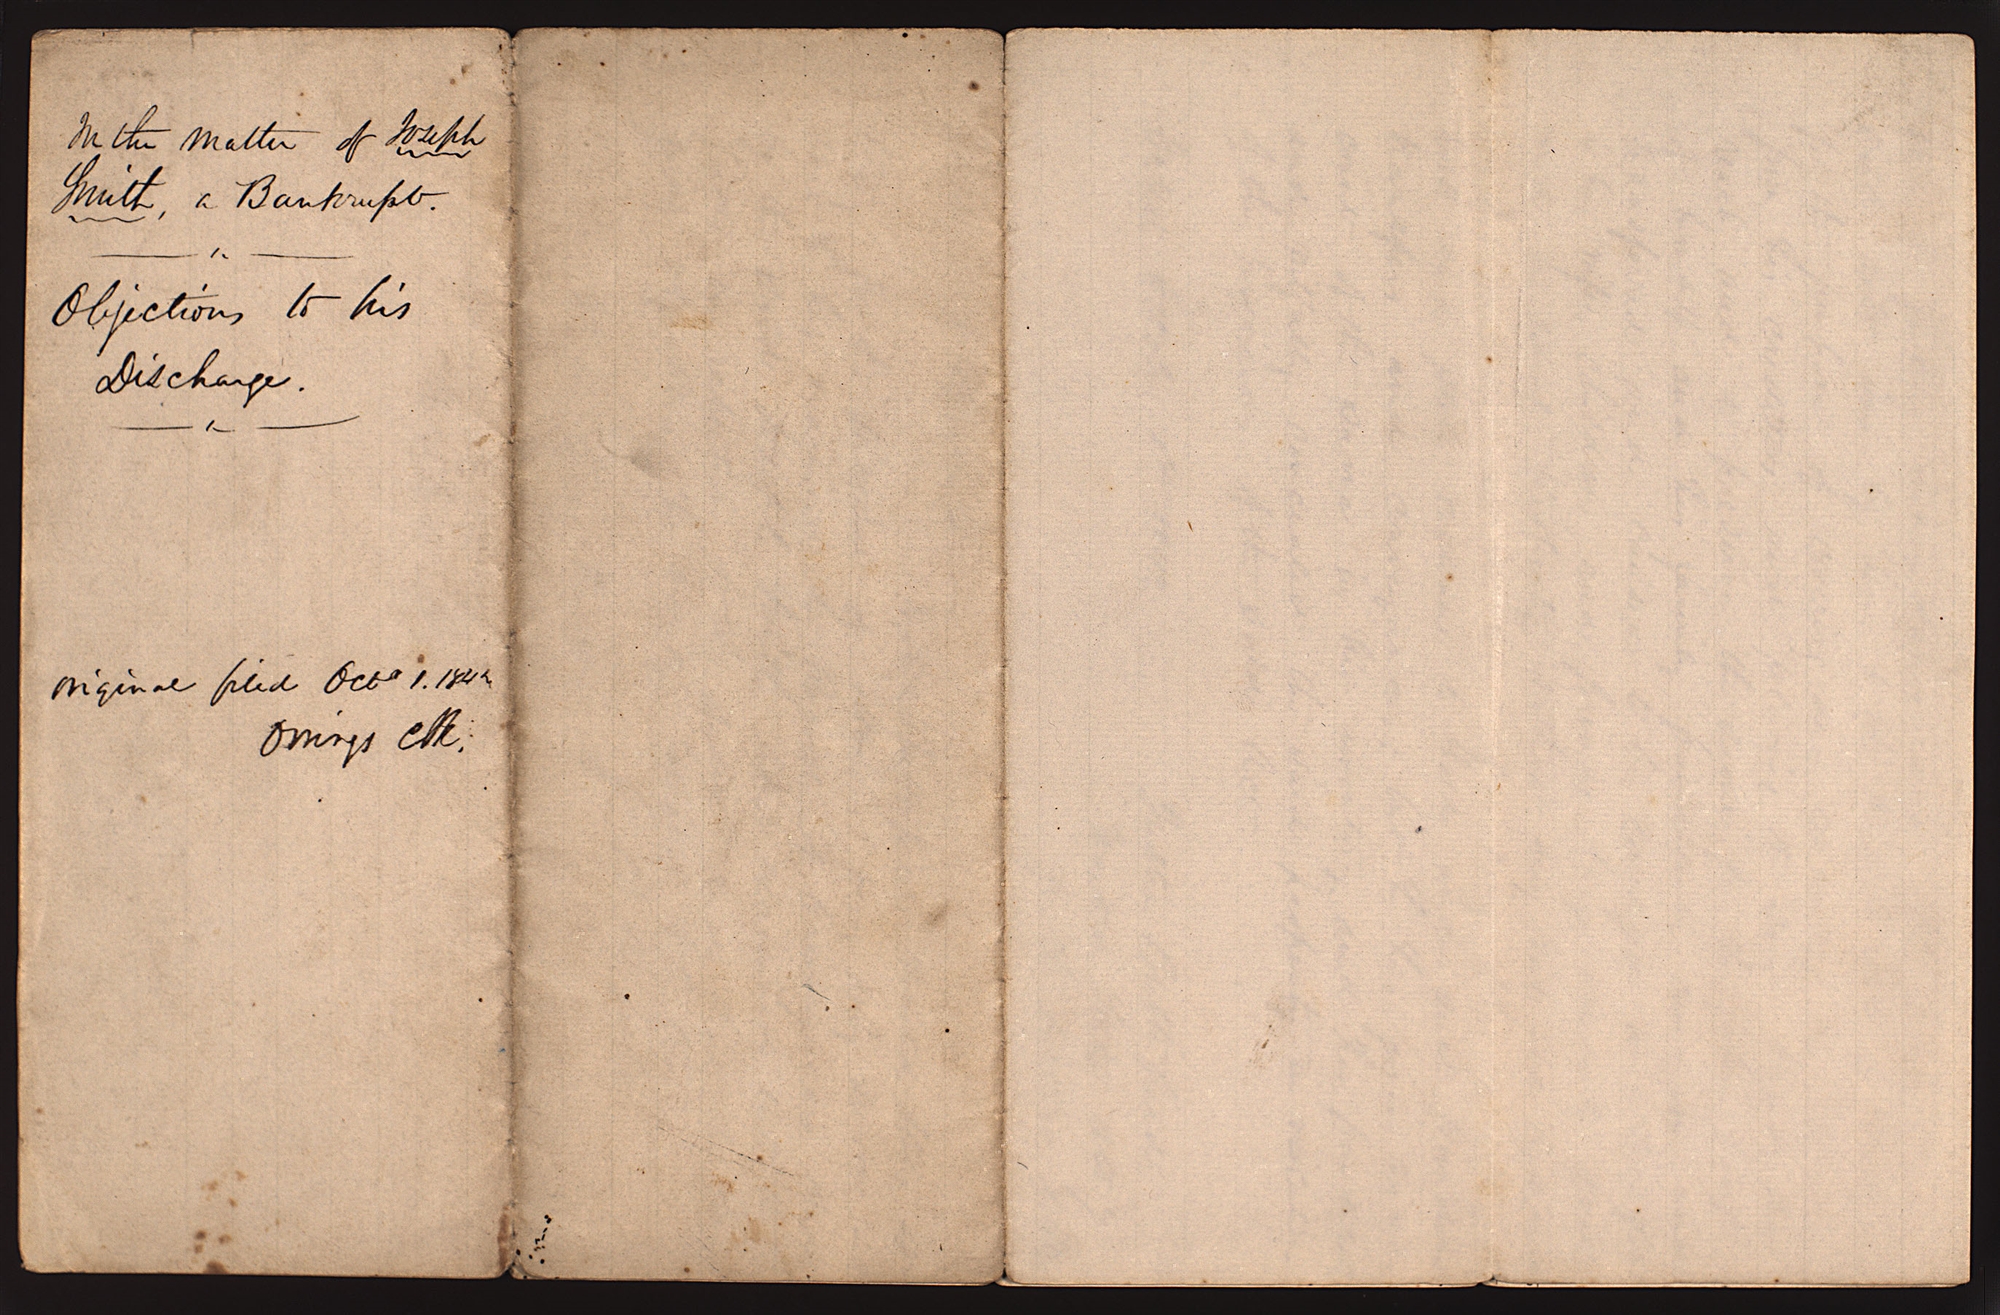 In the matter of Joseph
Smith, a Bankrupt.
Objections to his
Discharge.
original filed Octo 1. 1842
Owings Clk.